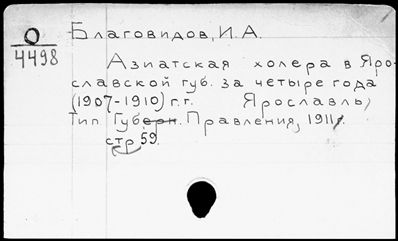 О
4498
Благовидов, И.А.
Азиатская холера в Яро-
славской губ. за четыре года
(1907-1910) г.г. Ярославль,
Тип Губерн. Правления, 1911г.
стр 59.